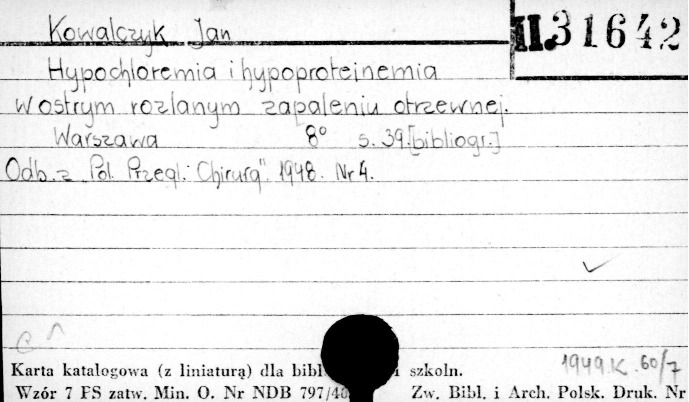 Kowalczyk Jan
II.31642
Hypochloremia i hypoproteinemia
w ostrym rozlanym zapaleniu otrzewnej.
Warszawa 8° s. 39.[bibliogr.]
Odb. z „Pol. Przegl. Chirurg". 1948. Nr 4.
1949 K 60/7
Karta katalogowa (z liniaturą) dla bibl i szkoln.
Wzór 7 FS zatw. Min. O. Nr NDB 797/48 Zw. Bibl. i Arch. Polsk. Druk. Nr